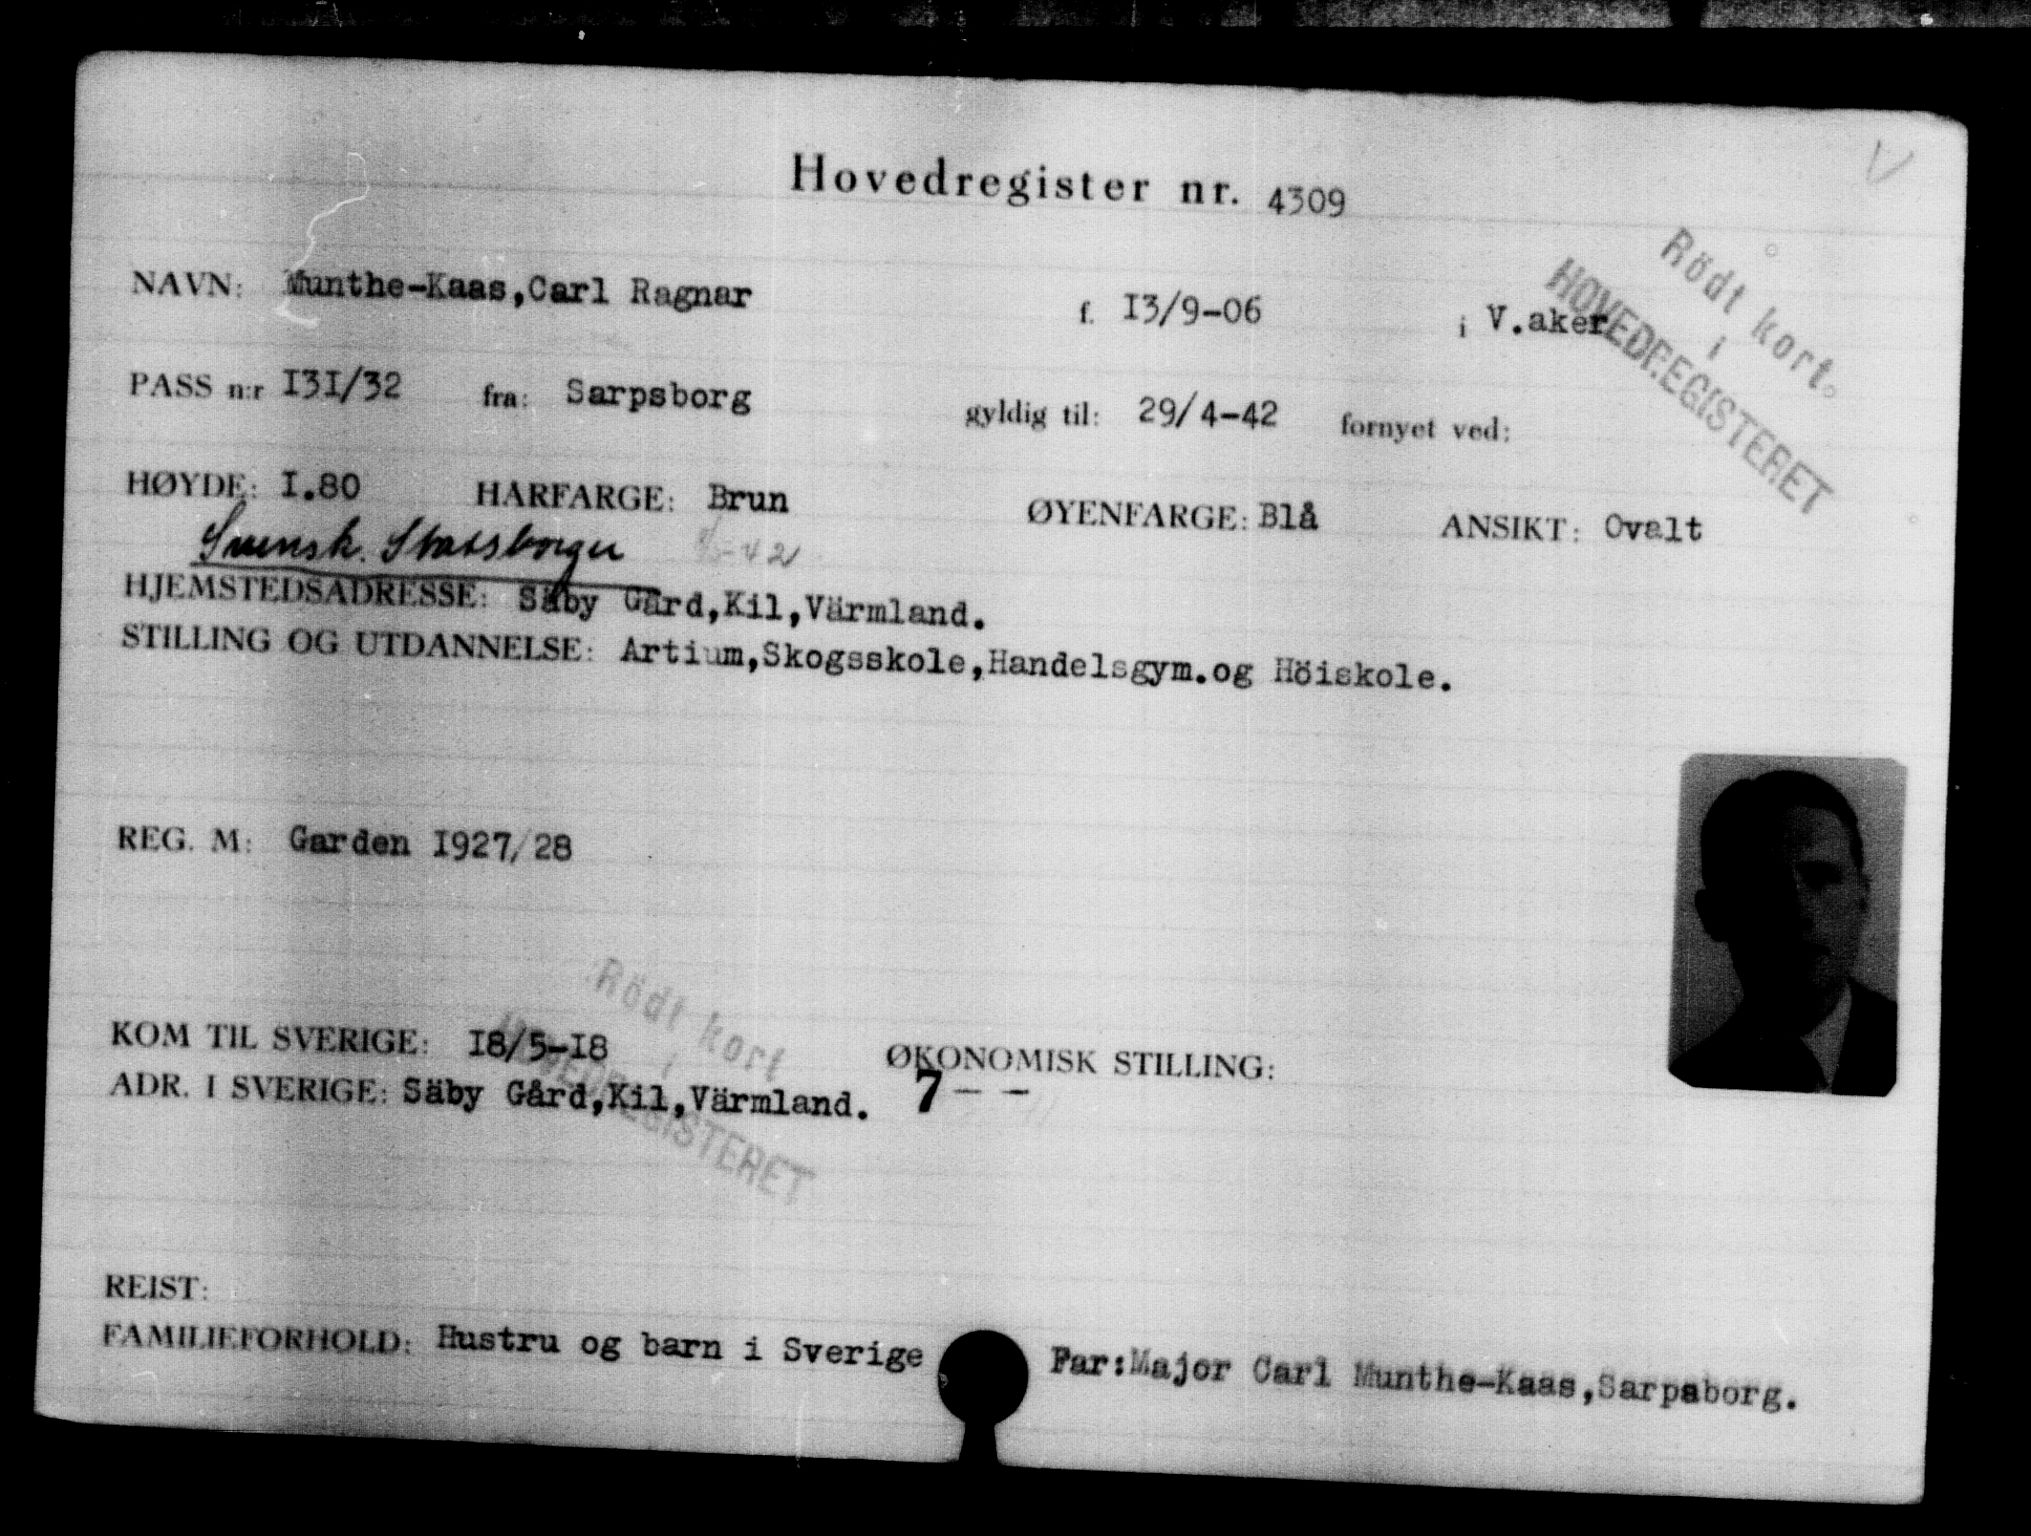 Hovedregister nr. 4309
Rödt kort
i
HOVEDREGISTERET
NAVN: Munthe-Kaas,Carl Ragnar f. I3/9-06 i V.aker
PASS n:r I3I/32 fra: Sarpsborg gyldig til: 29/4-42 fornyet ved:
HØYDE: I.80 HÅRFARGE: Brun ØYENFARGE: Blå ANSIKT: Ovalt
Svensk. Statsborger
HJEMSTEDSADRESSE: Säby Gård,Kil,Värmland.
STILLING OG UTDANNELSE: Artium,Skogsskole,Handelsgym.og Höiskole.
REG. M: Garden I927/28
Rödt kort
i
HOVEDREGISTERET
KOM TIL SVERIGE: I8/5-I8 ØKONOMISK STILLING:
ADR. I SVERIGE: Säby Gård,Kil,Värmland. 7 - -
REIST:
FAMILIEFORHOLD: Hustru og barn i Sverige Far:Major Carl Munthe-Kaas,Sarpsborg.